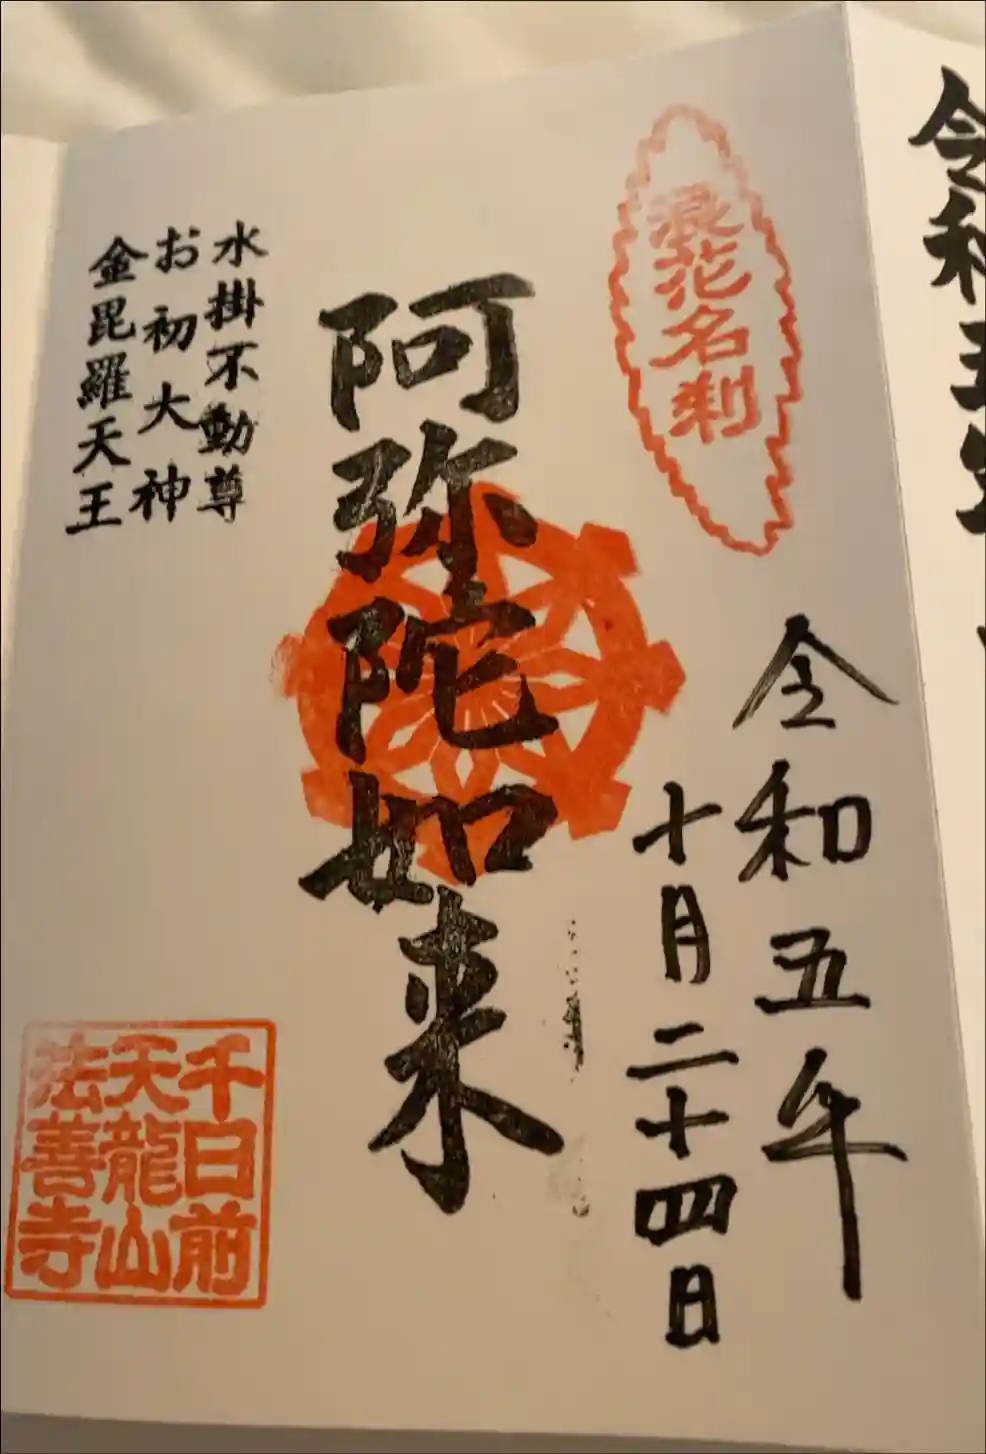 令和五
浪花名刹
令和五年
十月二十四日
阿弥陀如来
水掛不動尊
お初大神
金毘羅天王
千日前
天龍山
法善寺